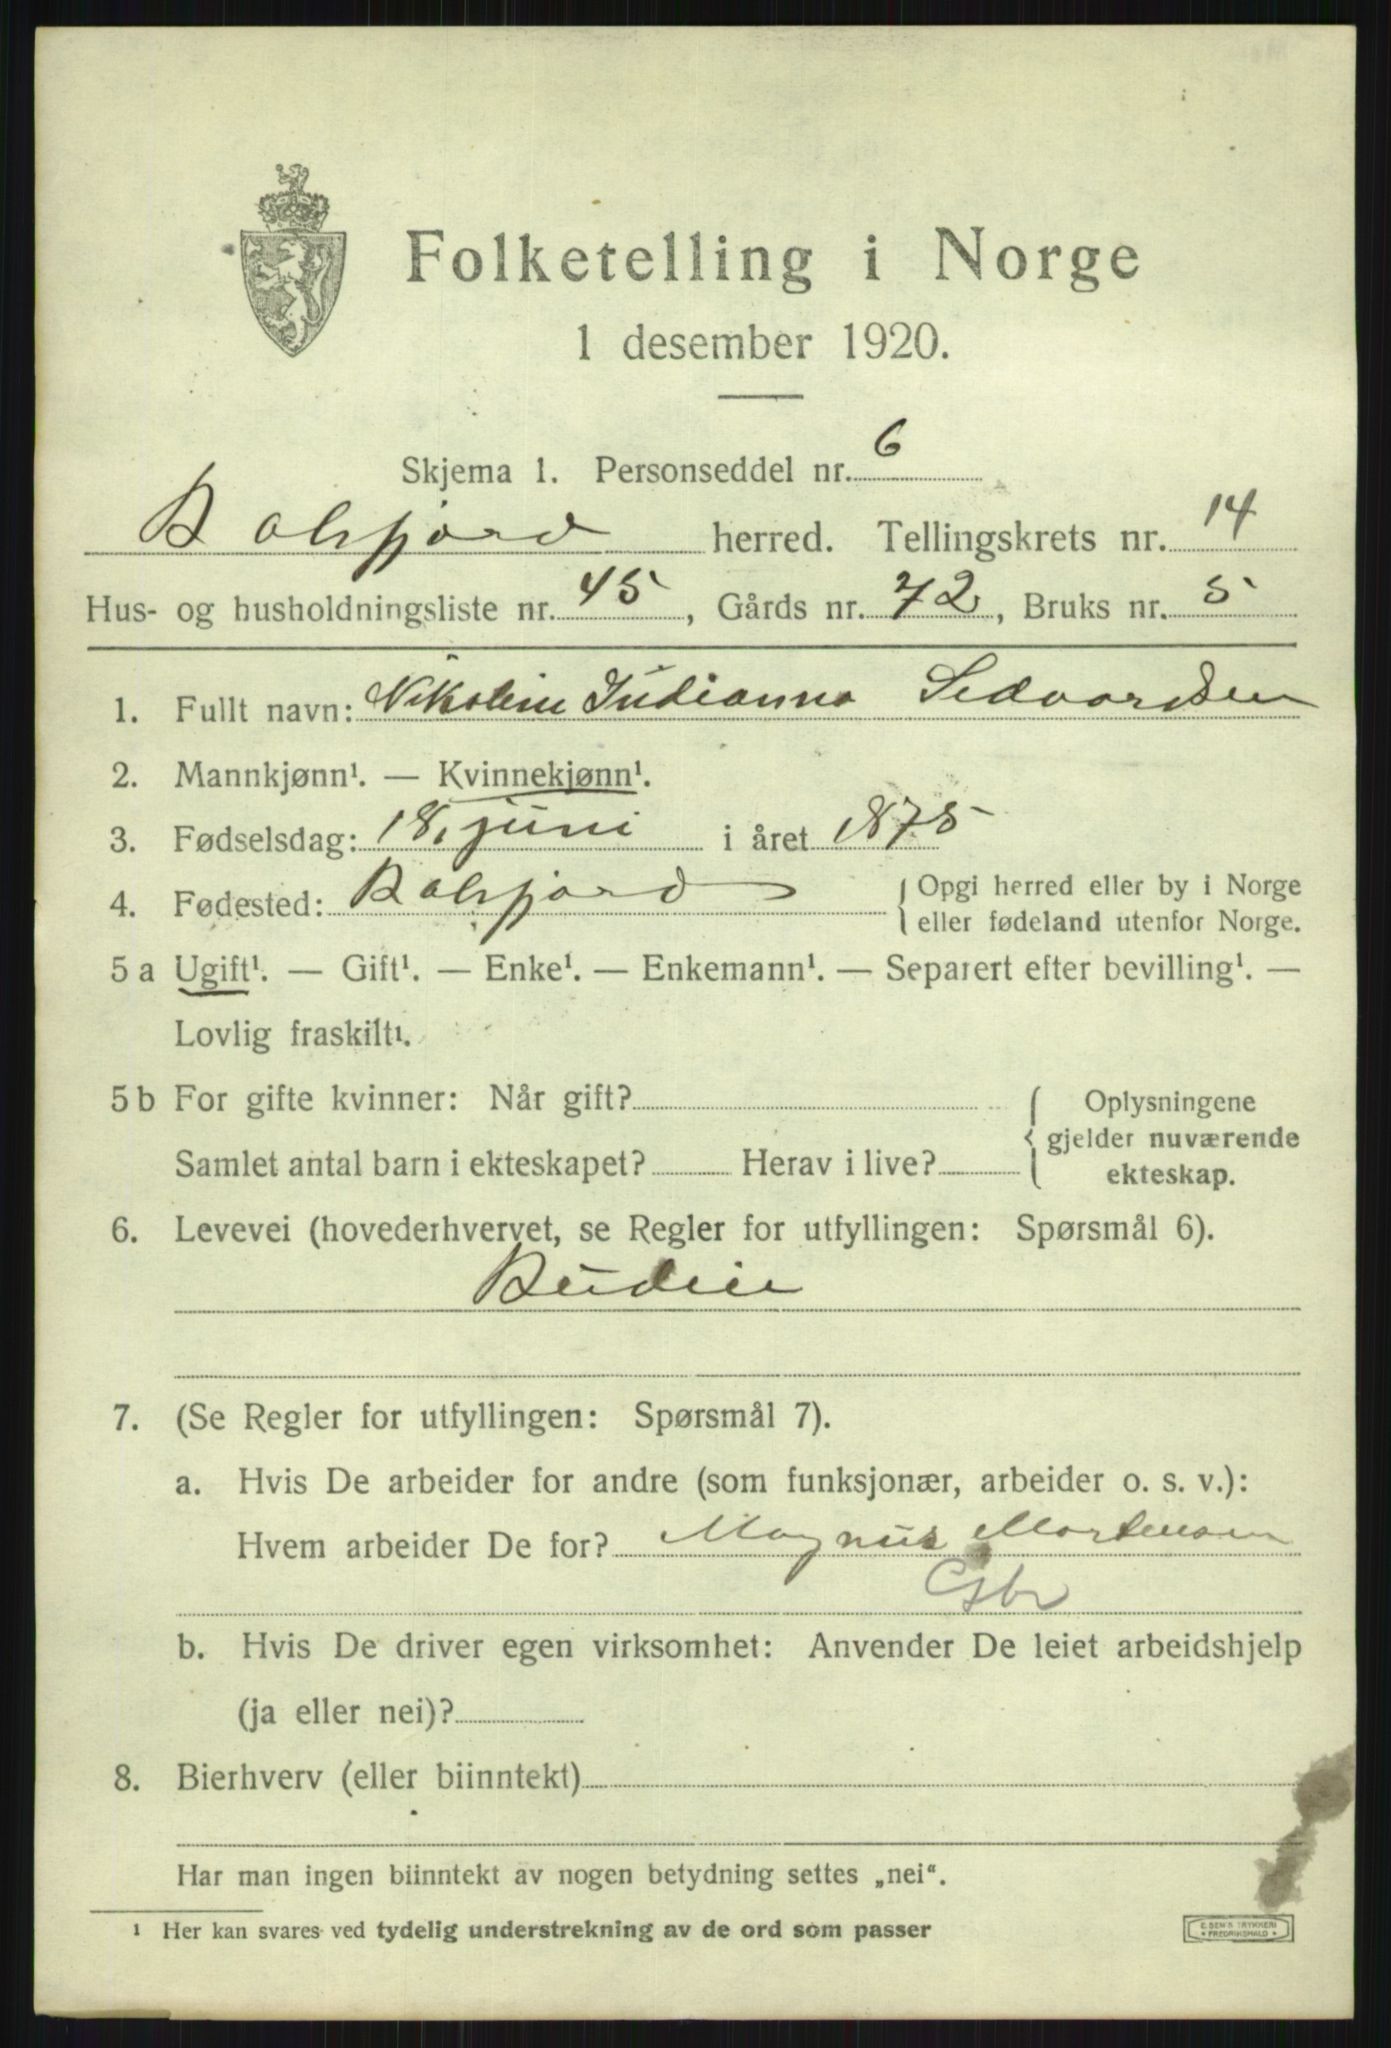 Folketelling i Norge
1 desember 1920.
Skjema 1. Personseddel nr. 6
Balsfjord herred. Tellingskrets nr. 14
Hus- og husholdningsliste nr. 45, Gårds nr. 72, Bruks nr. 5
1. Fullt navn: Nikoline Indianna Sedvardsen
2. Mannkjønn¹. — Kvinnekjønn¹.
3. Fødselsdag: 18. juni i året 1875
4. Fødested: Balsfjord { Opgi herred eller by i Norge
eller fødeland utenfor Norge.
5 a Ugift¹. — Gift¹. — Enke¹. — Enkemann¹. — Separert efter bevilling¹. —
Lovlig fraskilt¹.
5 b For gifte kvinner: Når gift? { Oplysningene
gjelder nuværende
Samlet antal barn i ekteskapet? Herav i live? ekteskap.
6. Levevei (hovederhvervet, se Regler for utfyllingen: Spørsmål 6).
Budeie
7. (Se Regler for utfyllingen: Spørsmål 7).
a. Hvis De arbeider for andre (som funksjonær, arbeider o. s. v.):
Hvem arbeider De for? Magnus Mortensen
Gbr
b. Hvis De driver egen virksomhet: Anvender De leiet arbeidshjelp
(ja eller nei)?
8. Bierhverv (eller biinntekt)
Har man ingen biinntekt av nogen betydning settes „nei“.
¹ Her kan svares ved tydelig understrekning av de ord som passer
E. SEM'S TRYKKERI
• FREDRIKSHALD •